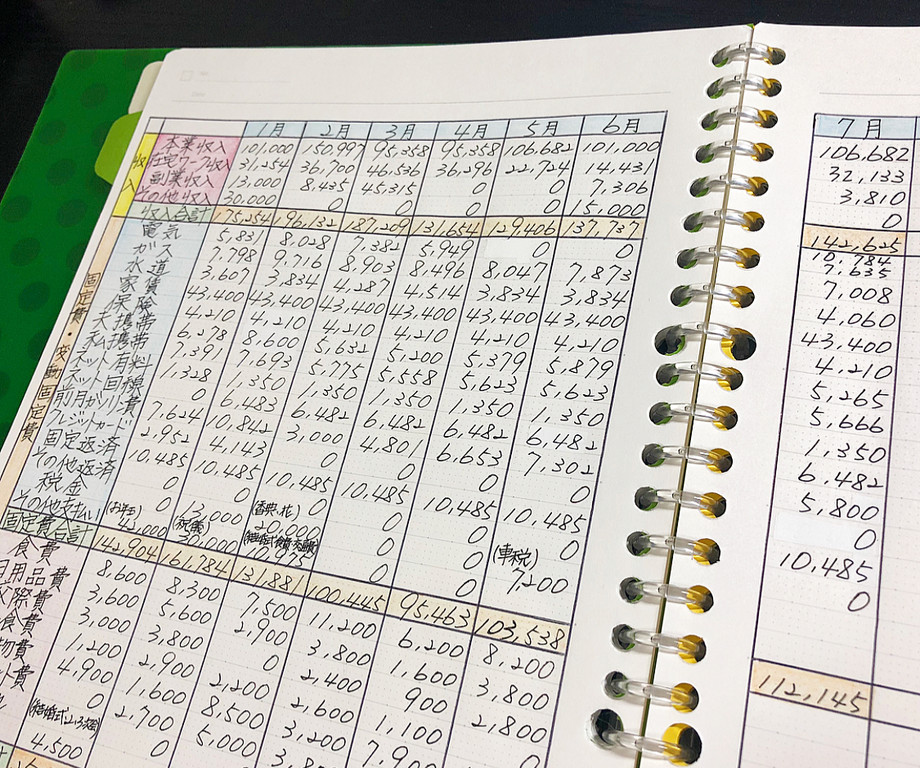 1月 2月 3月 4月 5月 6月 7月
収入
本業収入 101,000 150,997 95,358 95,358 106,682 101,000 106,682
在宅ワーク収入 31,254 36,700 46,536 36,296 22,724 14,431 32,133
副業収入 13,000 8,435 45,315 0 0 7,306 3,810
その他収入 30,000 0 0 0 0 15,000 0
収入合計 175,254 196,132 187,209 131,654 129,406 137,737 142,625
固定費・変動固定費
電気 5,831 8,028 7,382 5,949 0 0 10,784
ガス 7,798 9,716 8,903 8,496 8,047 7,873 7,635
水道 3,607 3,834 4,287 4,514 3,834 3,834 7,008
4,060
家賃 43,400 43,400 43,400 43,400 43,400 43,400 43,400
保険 4,210 4,210 4,210 4,210 4,210 4,210 4,210
夫携帯 6,278 8,600 5,632 5,200 5,379 5,879 5,265
私携帯 7,391 7,693 5,775 5,558 5,623 5,623 5,666
ネット有料 1,328 1,350 1,350 1,350 1,350 1,350 1,350
ネット回線 0 6,483 6,482 6,482 6,482 6,482 6,482
前月ガソリン費 7,624 10,842 3,000 4,801 6,653 7,302 5,800
クレジットカード 2,952 4,143 0 0 0 0 0
固定返済 10,485 10,485 10,485 10,485 10,485 10,485 10,485
その他返済 0 0 0 0 0 0 0
税金 0 13,000 0 0 0 (車税) 7,200
その他支払い (お年玉) 42,000 (祝儀) 30,000 (香典,花) 20,000 0 0
固定費合計 142,904 161,784 131,881 100,445 95,463 103,538 112,145
食費 8,600 8,300 7,500 11,200 6,200 8,200
日用品費 3,600 5,600 2,900 3,800 1,600 3,800
交際費 3,000 3,800 0 2,400 900 2,800
食費 1,200 2,900 2,200 2,600 1,100
物費 4,900 1,600 8,500 3,200 7,900
ット費 0 2,700 5,000
(結婚式2,3次会) 4,500 0